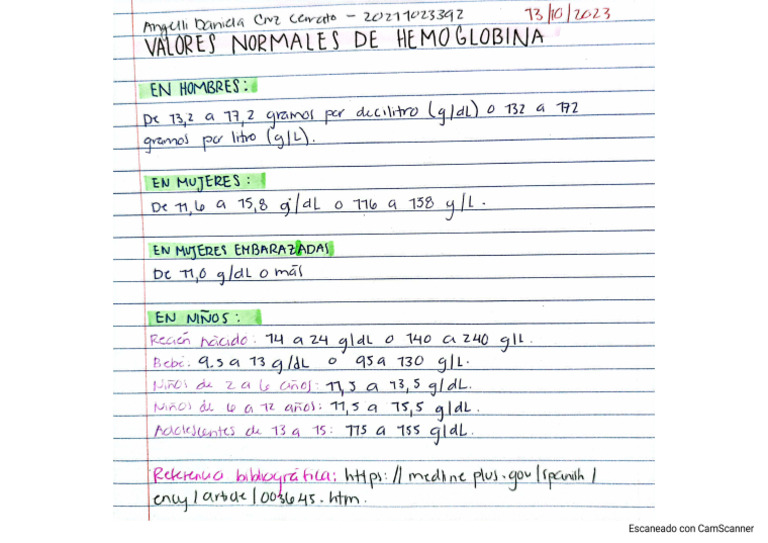 Angelli Daniela Cruz Cerrato - 20211023392 13/10/2023
VALORES NORMALES DE HEMOGLOBINA
EN HOMBRES:
De 13,2 a 17,2 gramos por decilitro (g/dL) o 132 a 172
gramos por litro (g/L).
EN MUJERES:
De 11,6 a 15,8 g/dL o 116 a 158 g/L.
EN MUJERES EMBARAZADAS
De 11,0 g/dL o más
EN NIÑOS:
Recién nacido: 14 a 24 g/dL o 140 a 240 g/L.
Bebé: 9.5 a 13 g/dL o 95 a 130 g/L.
Niños de 2 a 6 años: 11,5 a 13,5 g/dL.
Niños de 6 a 12 años: 11,5 a 15,5 g/dL.
Adolescentes de 13 a 15: 115 a 155 g/dL.
Referencia bibliográfica: https://medline plus.gov/spanish/
ency/article/003645.htm.
Escaneado con CamScanner